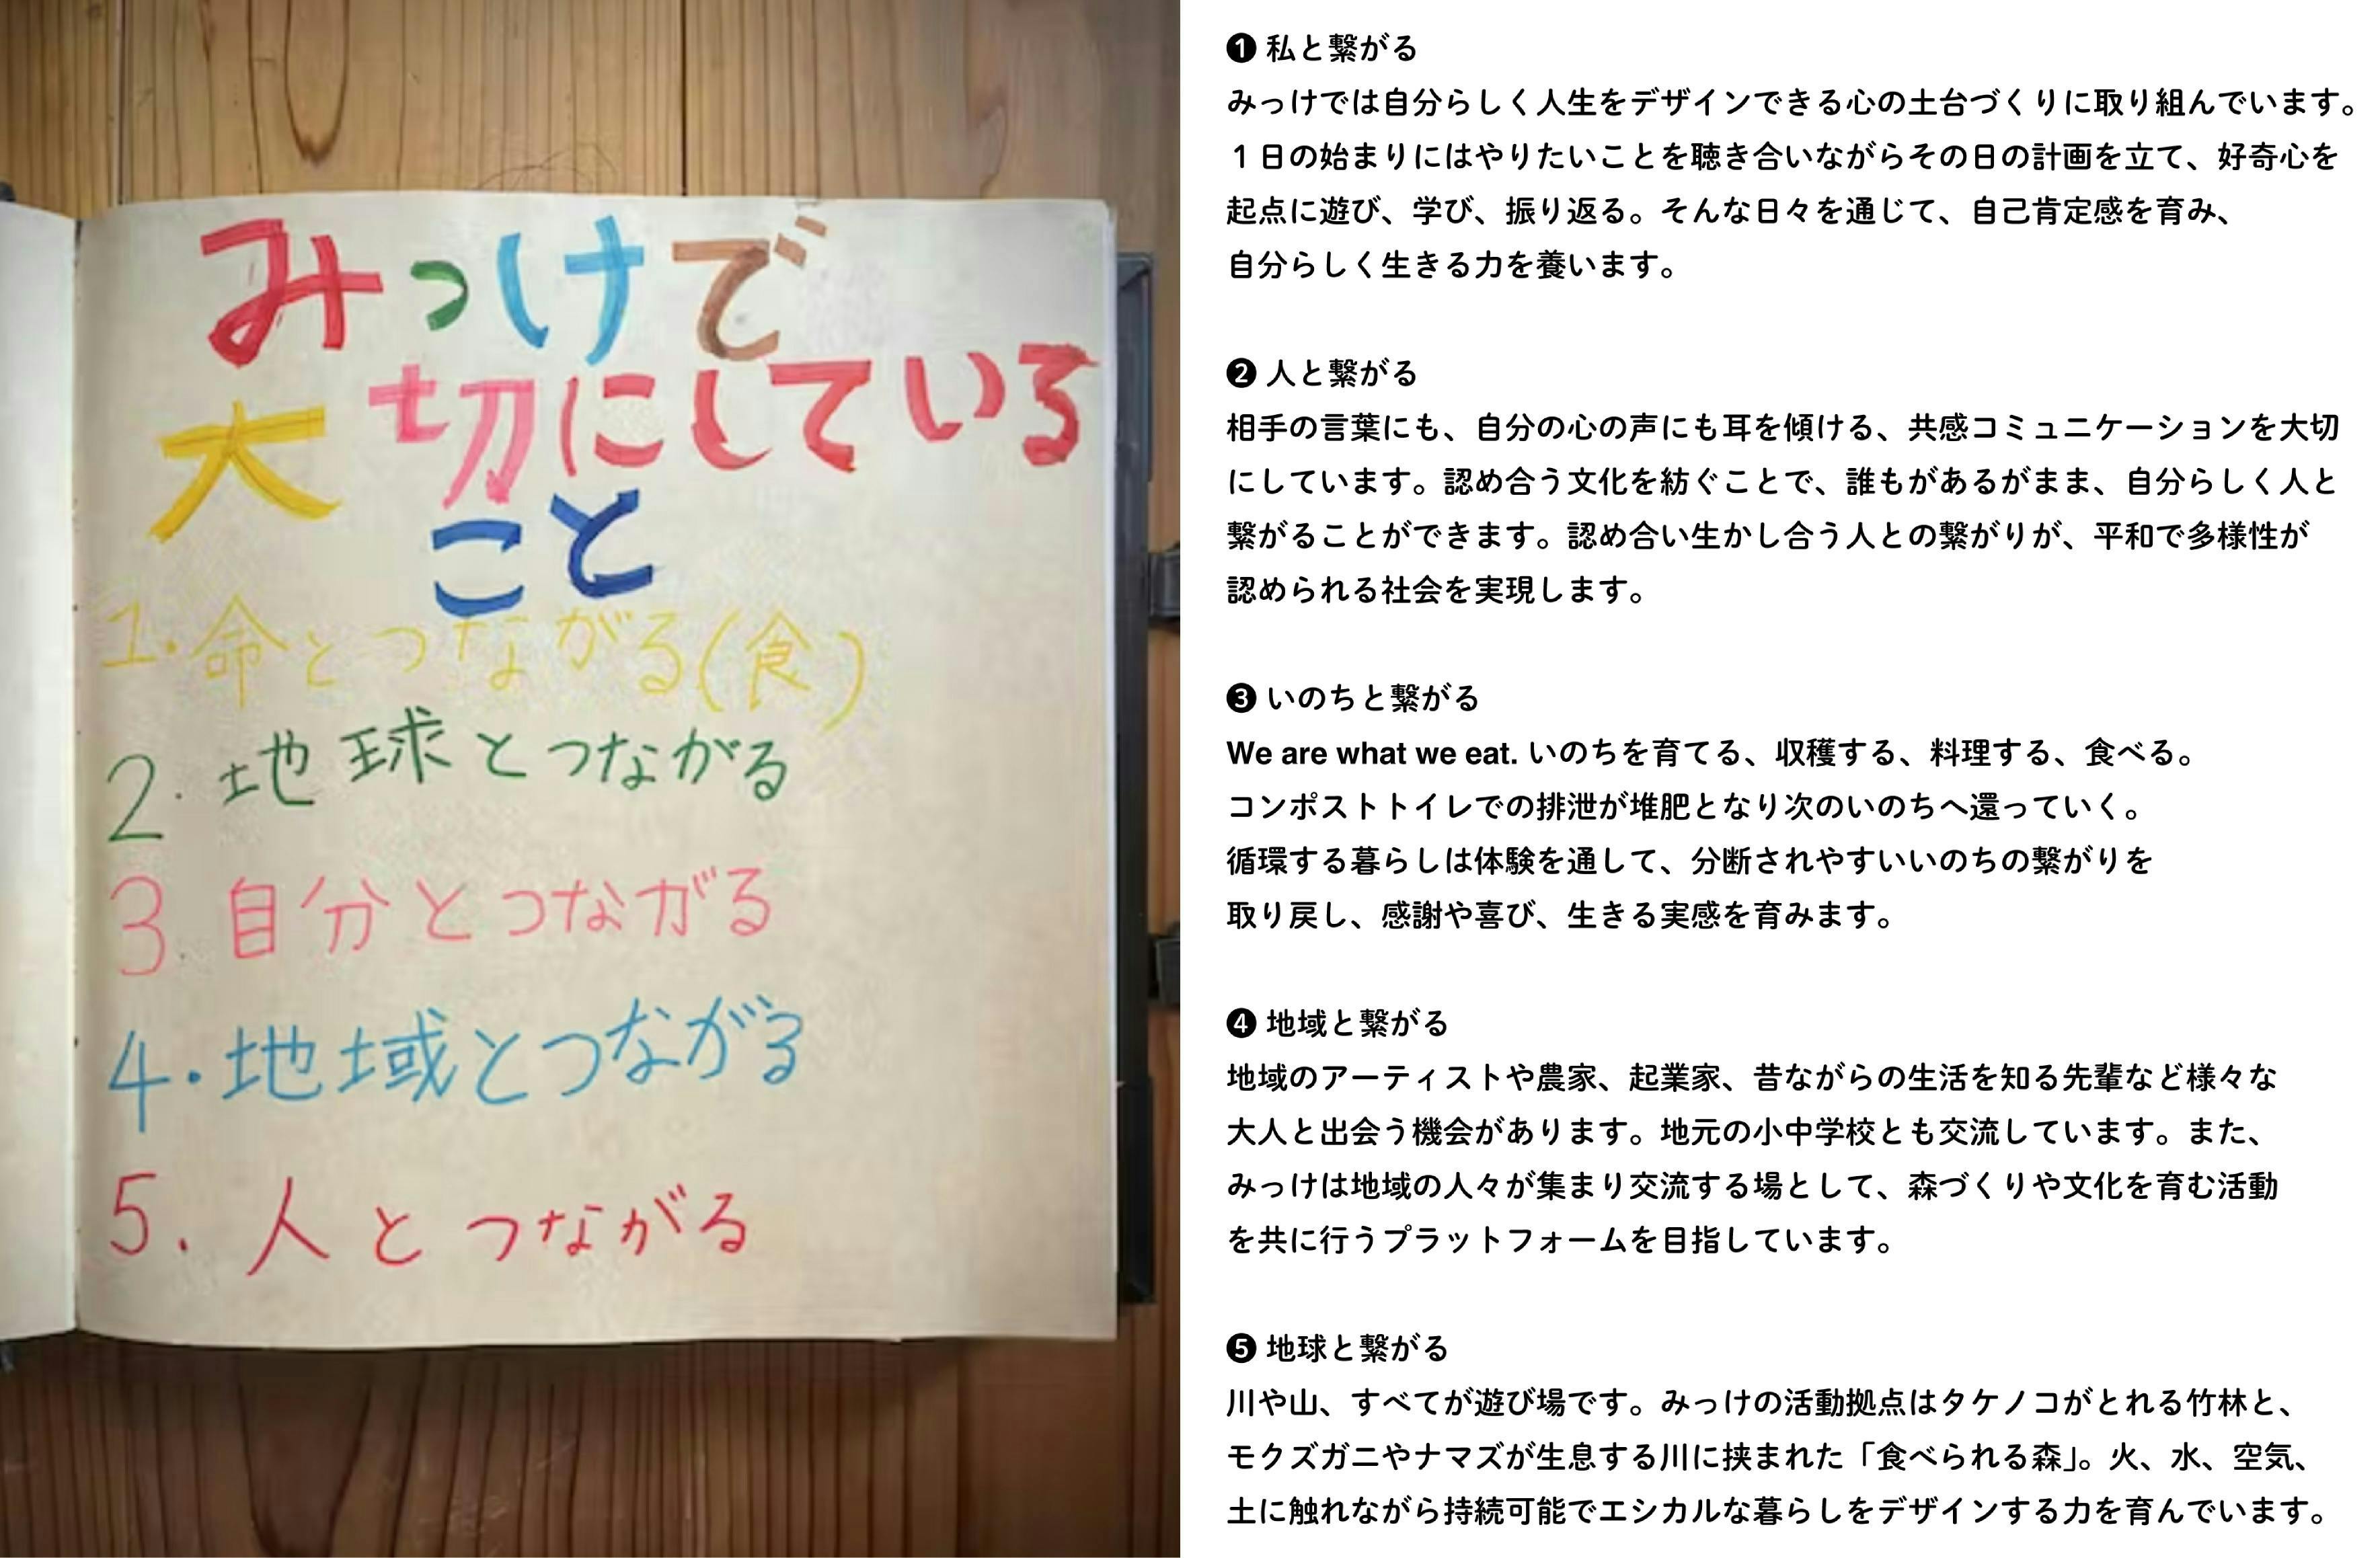 みっけで
大切にしている
こと
1.命とつながる(食)
2.地球とつながる
3.自分とつながる
4.地域とつながる
5.人とつながる
❶ 私と繋がる
みっけでは自分らしく人生をデザインできる心の土台づくりに取り組んでいます。
１日の始まりにはやりたいことを聴き合いながらその日の計画を立て、好奇心を
起点に遊び、学び、振り返る。そんな日々を通じて、自己肯定感を育み、
自分らしく生きる力を養います。
❷ 人と繋がる
相手の言葉にも、自分の心の声にも耳を傾ける、共感コミュニケーションを大切
にしています。認め合う文化を紡ぐことで、誰もがあるがまま、自分らしく人と
繋がることができます。認め合い生かし合う人との繋がりが、平和で多様性が
認められる社会を実現します。
❸ いのちと繋がる
We are what we eat. いのちを育てる、収穫する、料理する、食べる。
コンポストトイレでの排泄が堆肥となり次のいのちへ還っていく。
循環する暮らしは体験を通して、分断されやすいいのちの繋がりを
取り戻し、感謝や喜び、生きる実感を育みます。
❹ 地域と繋がる
地域のアーティストや農家、起業家、昔ながらの生活を知る先輩など様々な
大人と出会う機会があります。地元の小中学校とも交流しています。また、
みっけは地域の人々が集まり交流する場として、森づくりや文化を育む活動
を共に行うプラットフォームを目指しています。
❺ 地球と繋がる
川や山、すべてが遊び場です。みっけの活動拠点はタケノコがとれる竹林と、
モクズガニやナマズが生息する川に挟まれた「食べられる森」。火、水、空気、
土に触れながら持続可能でエシカルな暮らしをデザインする力を育んでいます。